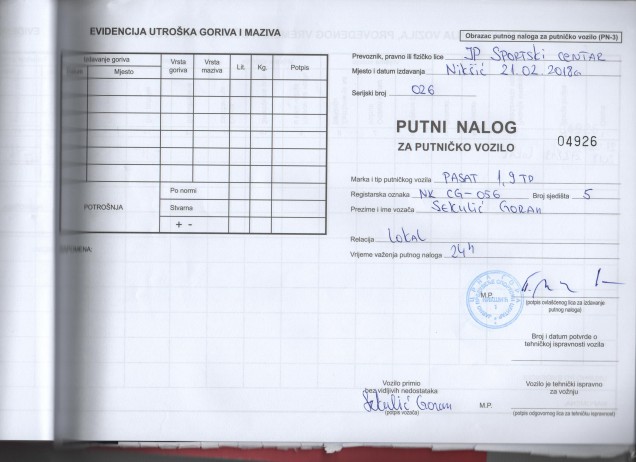 EVIDENCIJA UTROŠKA GORIVA I MAZIVA
Izdavanje goriva
Mjesto
Vrsta goriva
Vrsta maziva
Lit.
Kg.
Potpis
POTROŠNJA
Po normi
Stvarna
+ -
Obrazac putnog naloga za putničko vozilo (PN-3)
Prevoznik, pravno ili fizičko lice JP SPORTSKI CENTAR
Mjesto i datum izdavanja Nikšić 21.02.2018g
Serijski broj 026
PUTNI NALOG
ZA PUTNIČKO VOZILO
04926
Marka i tip putničkog vozila PASAT 1,9 TD
Registarska oznaka NK CG-056 Broj sjedišta 5
Prezime i ime vozača SEKULIĆ GORAN
Relacija LOKAL
Vrijeme važenja putnog naloga 24h
M.P.
(potpis ovlašćenog lica za izdavanje
putnog naloga)
Broj i datum potvrde o
tehničkoj ispravnosti vozila
Vozilo primio
bez vidljivih nedostataka
Sekulić Goran
(potpis vozača)
M.P.
Vozilo je tehnički ispravno
za vožnju
(potpis odgovornog lica za tehničku ispravnost)